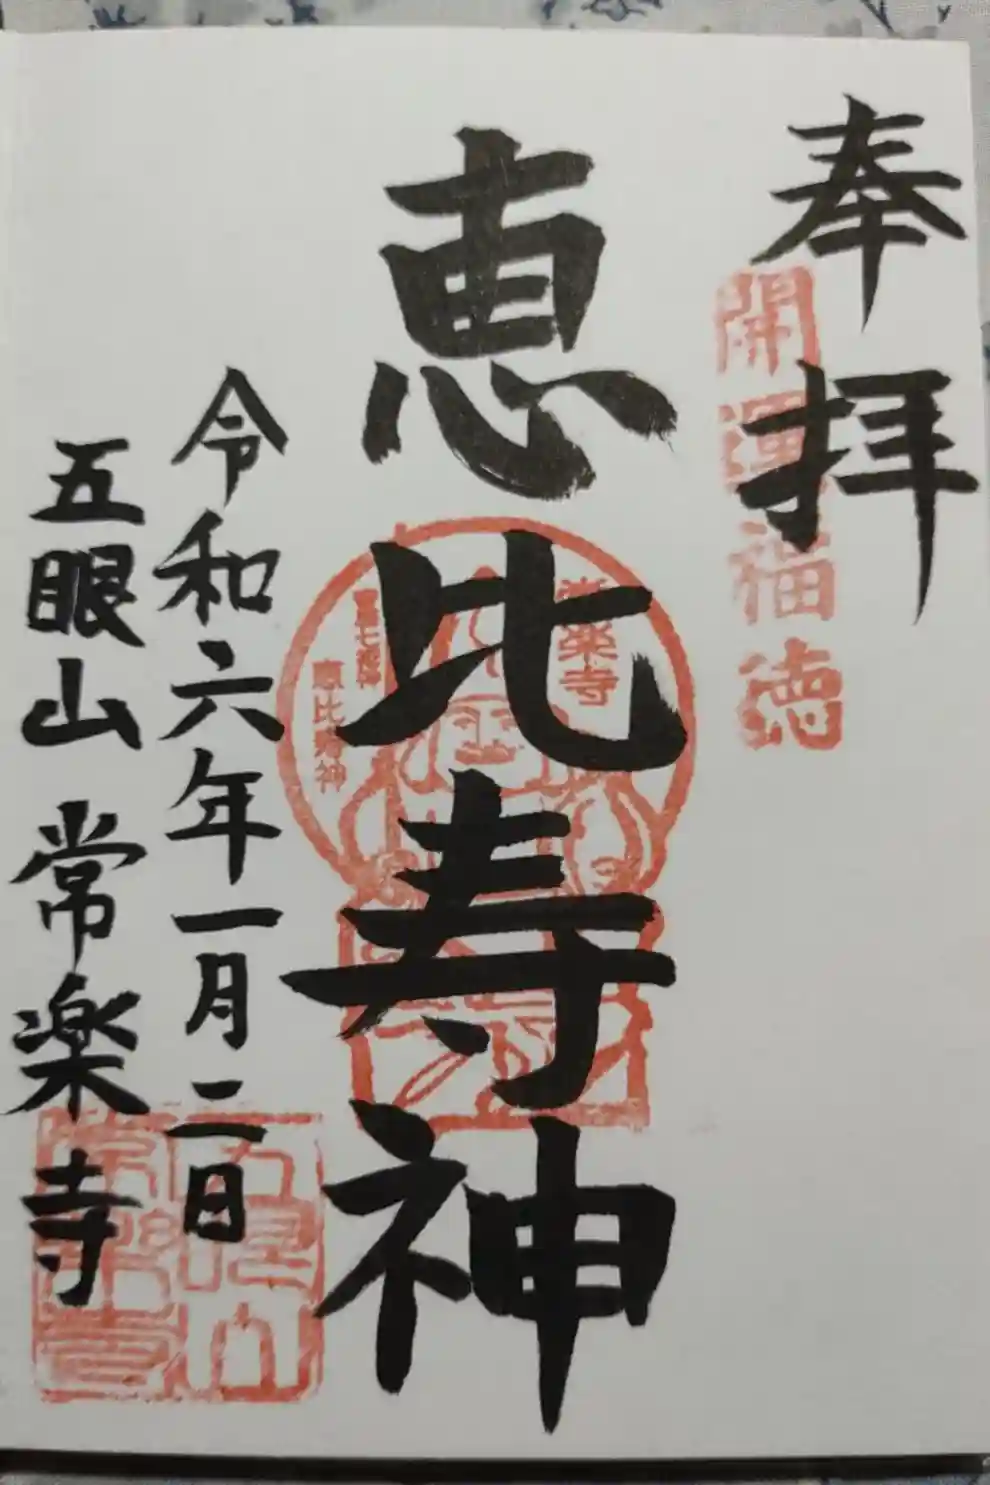 奉拝
開運福徳
恵比寿神
常楽寺
七福神
恵比寿神
令和六年一月二日
五眼山 常楽寺